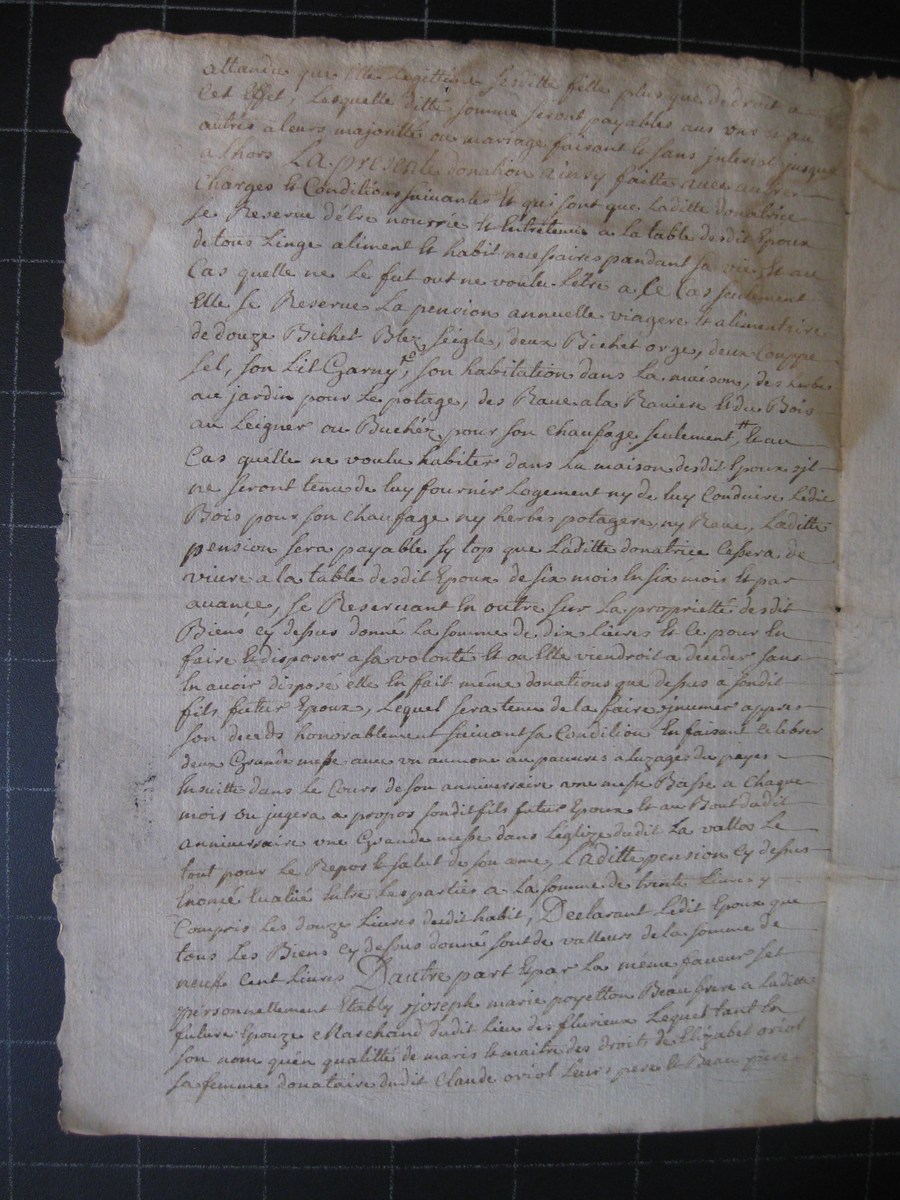 attandu que elle legittime saditte fille plus que de droit a
cet Effet, Lesquelle ditte somme seront payables aus vns et au
autres a leurs majoritté ou mariage faisant et sans interest jusque
alhors La presente donation Ainsy faitte avec autres
Charges et Conditions suivantes et qui sont que Laditte donatrice
se Reserve d'être nourrie et Entretenue a la table desdit Epoux
de tous Linge aliment et habit necessaires pandant sa vie, Et au
Cas quelle ne Le fut out ne voulu L'être a se Cas seulement
Elle se Reserve La pension annuelle viagere et alimentaire
de douze Bichet Blez seigle, deux Bichet orge, deux Couppe
sel, son Lit Garny, son habitation dans La maison, des herbe
au jardin pour Le potage, des Rave a la Raviere Et du Bois
au Leigner ou Buchér pour son chaufage seulement, Et au
Cas quélle ne voulu habiter dans La maison desdit Epoux sjl
ne seront tenu de luy fournir Logement ny de luy Conduire Ledit
Bois pour son chaufage ny herbes potagere, ny Rave, Laditte
pension sera payable sy top que Laditte donatrice Cessera de
vivre a la table desdit Epoux de six mois En six mois Et par
avance, se Reservant En outre sur La proprietté desdit
Biens cy dessus donné La somme de dix Lievres Et Ce pour En
faire Et disposer a sa volonté Et ou Elle viendroit a deceder sans
En avoir disposé elle En fait même donations que dessus a sondit
fils futur Epoux, Lequel sera tenu de la faire jnumer appres
son deceds honorablement suivant sa Condition En faisant Celebrer
deux Grande messe avec vn aumone au pauvres a luzages du payes
Ensuitte dans Le Cours de son anniversaire vne messe Basse a Chaque
mois ou jugera a propos sondit fils futur Epoux Et au Bout dudit
anniversaire vne Grande messe dans Leglize dudit La valloz Le
tout pour Le Repos et salut de son ame, Laditte pension cy dessus
Enoncé Evalué Entre Les parties a La somme de trente Livres y
Compris Les douze Livres desdit habit, Declarant Ledit Epoux que
tous Les Biens cy dessus donné sont de valleurs de la somme de
neuf Cent Livres D'autre part Et par La même faveur s'et
personnellement Etably sjoseph marie poyetton Beau frere a Laditte
future Epouze Marchand dudit Lieu des flurieux Lequel tant En
son nom qu'én qualitté de maris Et maitre des droits de Elizabet oriol
sa femme donataire dudit Claude oriol Leurs pere Et Beau pere